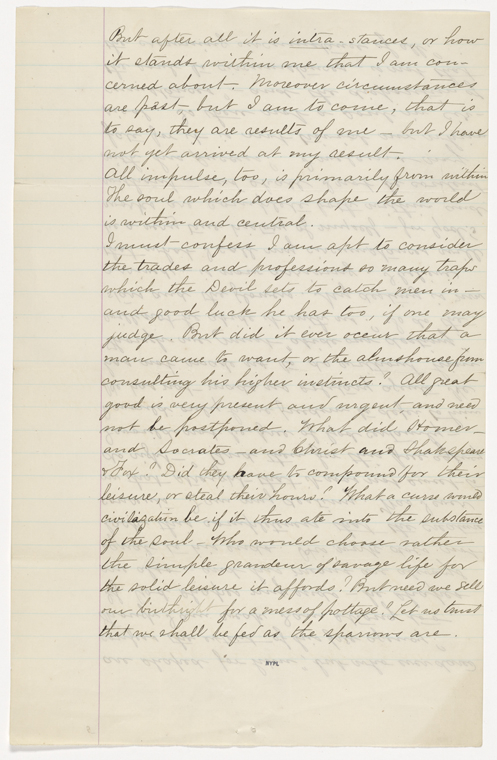 But after all it is intra-stances, or how
it stands within me that I am con-
cerned about. Moreover circumstances
are past but I am to come, that is
to say, they are results of me — but I have
not yet arrived at my result.
All impulse, too, is primarily from within
The soul which does shape the world
is within and central.
I must confess I am apt to consider
the trades and professions so many traps
which the Devil sets to catch men in —
and good luck he has too, if one may
judge. But did it ever occur that a
man came to want, or the almshouse from
consulting his higher instincts? All great
good is very present and urgent and need
not be postponed. What did Homer —
and Socrates — and Christ and Shakspeare
& Fox? Did they have to compound for their
leisure, or steal their hours? What a curse would
civilization be if it thus ate into the substance
of the soul — Who would choose rather
the simple grandeur of savage life for
the solid leisure it affords? But need we sell
our birthright for a mess of pottage? Let us trust
that we shall be fed as the sparrows are.
NYPL